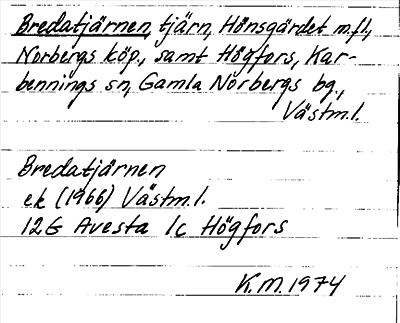 Bredatjärnen, tjärn, Hönsgärdet m.fl.,
Norbergs köp., samt Högfors, Kar-
bennings sn, Gamla Norbergs bg.,
Västm.l.
Bredatjärnen
ek (1966) Västm.l.
12G Avesta 1c Högfors
K.M. 1974